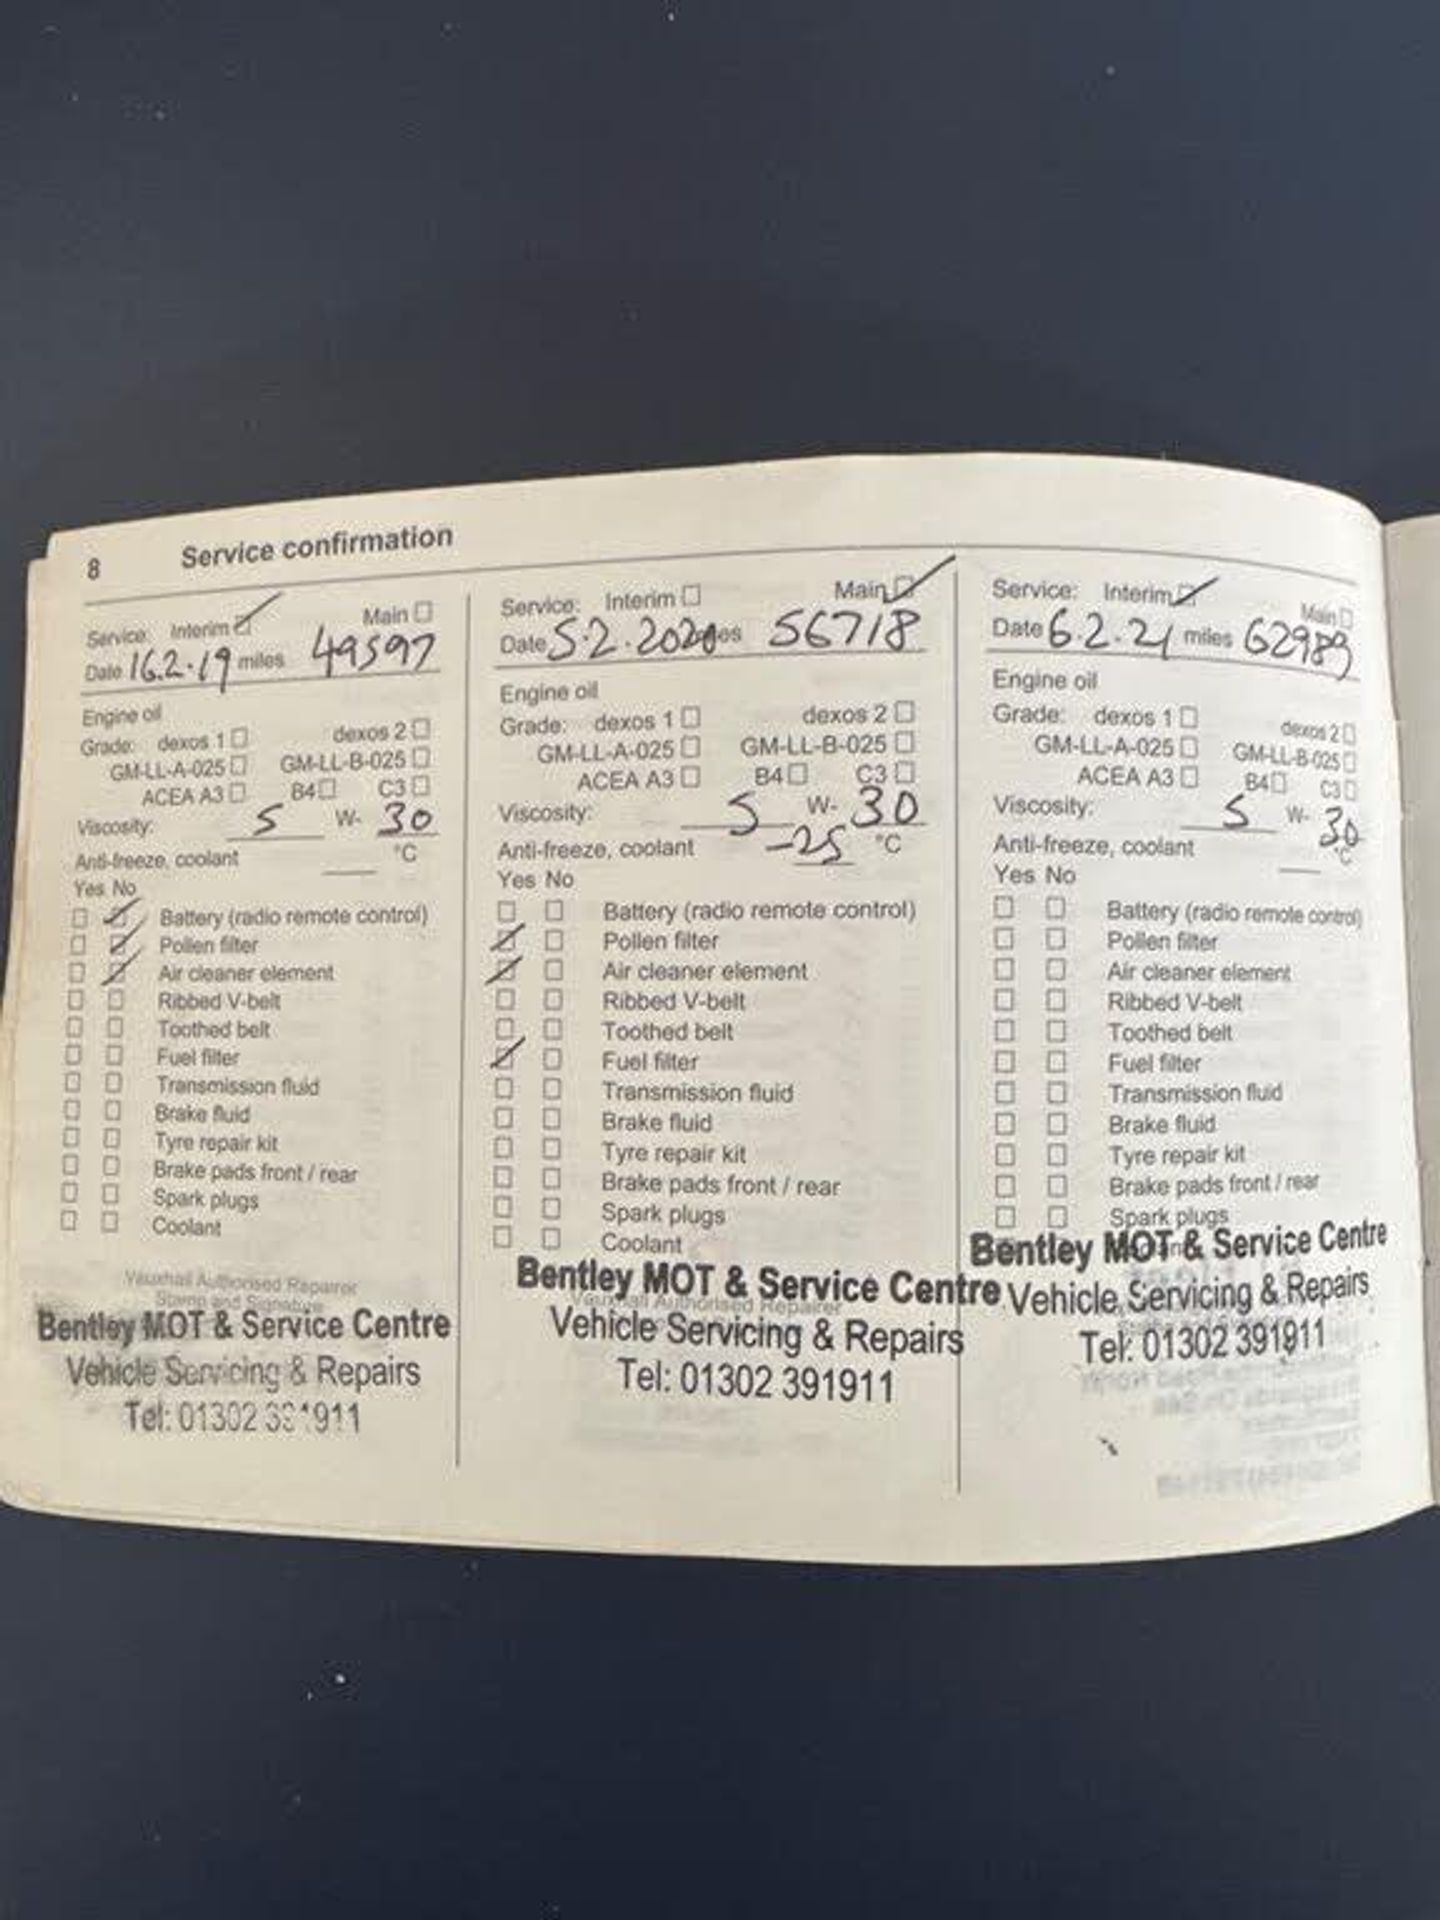 8 Service confirmation
Service: Interim Main
Date 16.2.19 miles 49597
Engine oil
Grade: dexos 1 dexos 2
GM-LL-A-025 GM-LL-B-025
ACEA A3 B4 C3
Viscosity: 5 W- 30
Anti-freeze, coolant °C
Yes No
Battery (radio remote control)
Pollen filter
Air cleaner element
Ribbed V-belt
Toothed belt
Fuel filter
Transmission fluid
Brake fluid
Tyre repair kit
Brake pads front / rear
Spark plugs
Coolant
Vauxhall Authorised Repairer
Stamp and Signature
Bentley MOT & Service Centre
Vehicle Servicing & Repairs
Tel: 01302 391911
Service: Interim Main
Date 5.2.2020 miles 56718
Engine oil
Grade: dexos 1 dexos 2
GM-LL-A-025 GM-LL-B-025
ACEA A3 B4 C3
Viscosity: 5 W- 30
Anti-freeze, coolant -25 °C
Yes No
Battery (radio remote control)
Pollen filter
Air cleaner element
Ribbed V-belt
Toothed belt
Fuel filter
Transmission fluid
Brake fluid
Tyre repair kit
Brake pads front / rear
Spark plugs
Coolant
Vauxhall Authorised Repairer
Bentley MOT & Service Centre
Vehicle Servicing & Repairs
Tel: 01302 391911
Service: Interim Main
Date 6.2.21 miles 62989
Engine oil
Grade: dexos 1 dexos 2
GM-LL-A-025 GM-LL-B-025
ACEA A3 B4 C3
Viscosity: 5 W- 30
Anti-freeze, coolant °C
Yes No
Battery (radio remote control)
Pollen filter
Air cleaner element
Ribbed V-belt
Toothed belt
Fuel filter
Transmission fluid
Brake fluid
Tyre repair kit
Brake pads front / rear
Spark plugs
Bentley MOT & Service Centre
Vehicle Servicing & Repairs
Tel: 01302 391911